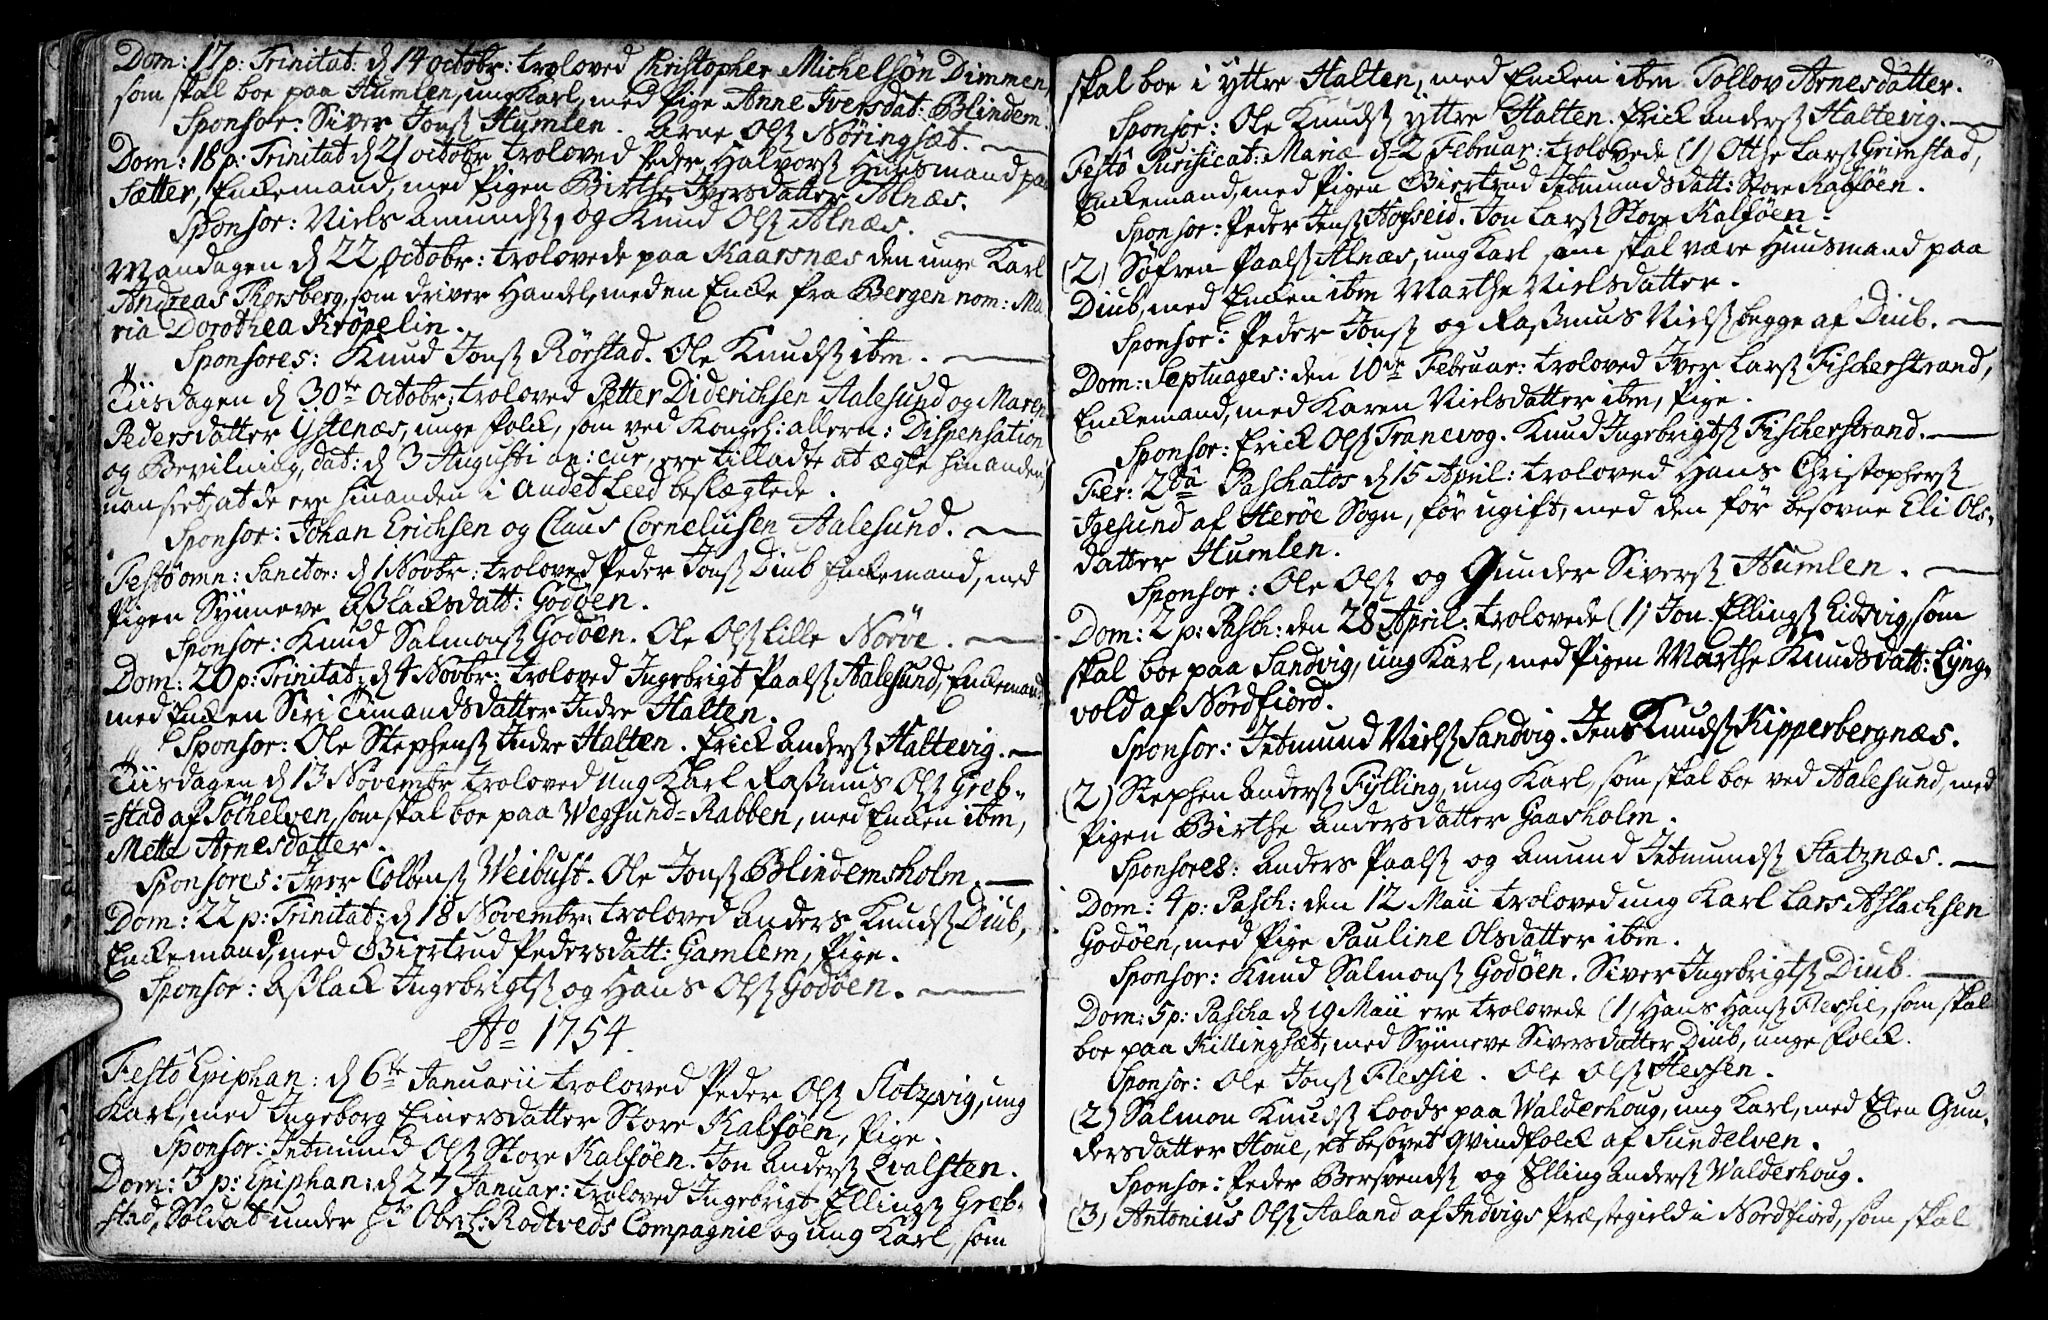 Dom: 17 p: Trinitat: d 14 octobr: troloved Christopher Michelsøn Dimmen,
som skal boe paa Humlen, ung Karl, med Pige Anne Iversdat: Blindem.
Sponsor: Siver Jonsß Humlen. Arne Olsß Nøringsæt.
Dom: 18 p: Trinitat d 21 octobr troloved Peder Halvorsß Huusmand paa
Sætter, Enckemand, med Pigen Birthe Iversdatter Alnæs.
Sponsor: Niels Amundsß og Knud Olsß Alnæs.
Mandagen d 22 octobr: trolovede paa Kaarsnæs den unge Karl
Andreas Thorsberg, som driver Handel, med en Encke fra Bergen nom: Ma
ria Dorothea Krøpelin.
Sponsores: Knud Jonsß Rørstad. Ole Knudsß ibm.
Tiisdagen d 30te octobr: troloved Petter Diderichsen Aalesund og Maren
Pedersdatter Ystenæs, unge Folck, som ved Kongel: allern: Dispensation
og Bevilning, dat: d 3 Augusti an: cur, ere tilladte at ægte hinanden,
uanseet, at de ere hinanden i andet Leed beslægtede.
Sponsor: Johan Erichsen og Claus Corneliusen Aalesund.
Festô omn: Sanctor: d 1 Novbr: troloved Peder Jonsß Diub Enckemand, med
Pigen Synneve Aßlacksdatt: Godøen.
Sponsor: Knud Salmonsß Godøen. Ole Olsß Lille Norøe.
Dom: 20 p: Trinitat: d 4 Novbr: troloved Ingebrigt Paalsß Aalesund, Enckemand
med Encken Siri Timandsdatter Indre Halten.
Sponsor: Ole Stephensß Indre Halten. Erick Andersß Haltevig.
Tiisdagen d 13 Novembr troloved ung Karl Raßmus Olsß Greb-
=stad af Søchelven, som skal boe paa Wegsund=Rabben, med Encken ibm,
Mette Arnesdatter.
Sponsores: Iver Colbensß Weibust. Ole Jonsß Blindemsholm.
Dom: 22 p: Trinitat: d 18 Novembr: troloved Anders Knudsß Diub,
Enckemand, med Giertrud Pedersdatt: Gamlem, Pige.
Sponsor: Aßlack Ingebrigtsß og Hans Olsß Godøen.
Ao 1754.
Festô Epiphan: d 6te Januarii troloved Peder Olsß Slotzvig, ung
Karl, med Ingeborg Einersdatter Store Kalføen, Pige.
Sponsor: Jetmund Olsß Store Kalføen. Jon Andersß Qvalsten.
Dom: 3 p: Epiphan: d 27 Januar: troloved Ingebrigt Ellingsß Greb-
stad, Soldat under Hr Oberstl: Rodtveds Compagnie og ung Karl, som
skal boe i yttre Halten, med Encken ibm Tollov Arnesdatter.
Sponsor: Ole Knudsß yttre Halten. Erick Andersß Haltevig.
Festô Purificat: Mariæ d 2 Februar: trolovede (1) Otthe Larsß Grimstad,
Enckemand, med Pigen Giertrud Jetmundsdatt: Store Kalføen.
Sponsor: Peder Jensß Hofseid. Jon Larsß Store Kalføen.
(2) Søfren Paalsß Alnæs, ung Karl som skal være Huusmand paa
Diub, med Encken ibm Marthe Nielsdatter.
Sponsor: Peder Jonsß og Raßmus Nielsß begge af Diub.
Dom: Septuages: den 10de Februar: troloved Iver Larsß Fischerstrand,
Enckemand, med Karen Nielsdatter ibm, Pige.
Sponsor: Erick Olsß Tranevog. Knud Ingebrigtsß Fischerstrand.
Fer: 2dâ Paschatos d 15 April: troloved Hans Christophersß
Igesund af Herøe Sogn, før ugift, med den før besovne Eli Ols-
datter Humlen.
Sponsor: Ole Olsß og Gunder Siversß Humlen.
Dom: 2 p: Pasch: den 28 April: trolovede (1) Jon Ellingsß Eidsvig, som
skal boe paa Sandvig, ung Karl, med Pigen Marthe Knudsdatt: Lyng-
vold af Nordfiord.
Sponsor: Jetmund Nielsß Sandvig. Jens Knudsß Kipperbergnæs.
(2) Stephen Andersß Fylling, ung Karl, som skal boe ved Aalesund, med
Pigen Birthe Andersdatter Gaasholm.
Sponsores: Anders Paalsß og Amund Jetmundsß Slatznæs.
Dom: 4 p: Pasch: den 12 Maii troloved ung Karl Lars Aslachsen
Godøen, med Pige Pauline Olsdatter ibm.
Sponsor: Knud Salmonsß Godøen. Siver Ingebrigtsß Diub.
Dom: 5 p: Pascha d 19 Maii ere trolovede (1) Hans Hansß Flessie, som skal
boe paa Killingsæt, med Synneve Siversdatter Diub, unge Folck.
Sponsor: Ole Jonsß Flessie. Ole Olsß Hessen.
(2) Salmon Knudsß Loods paa Walderhoug, ung Karl, med Elen Gun-
dersdatter Houe, et besovet Qvindfolck af Sundelven.
Sponsor: Peder Bersvendsß og Elling Andersß Walderhoug.
(3) Antonius Olsß Aaland af Indvigs Præstegield i Nordfiord, som skal